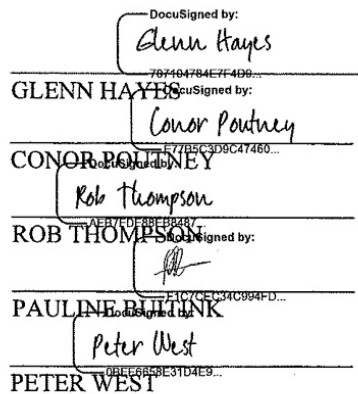 DocuSigned by:
Glenn Hayes
787104784E7F4D9...
GLENN HAYES
DocuSigned by:
Conor Poutney
E77B5C3D9C47460...
CONOR POUTNEY
DocuSigned by:
Rob Thompson
AEB7FDF88EB8487...
ROB THOMPSON
DocuSigned by:
F1C7CEC34C994FD...
PAULINE BUITINK
DocuSigned by:
Peter West
0BEE6658E31D4E9...
PETER WEST